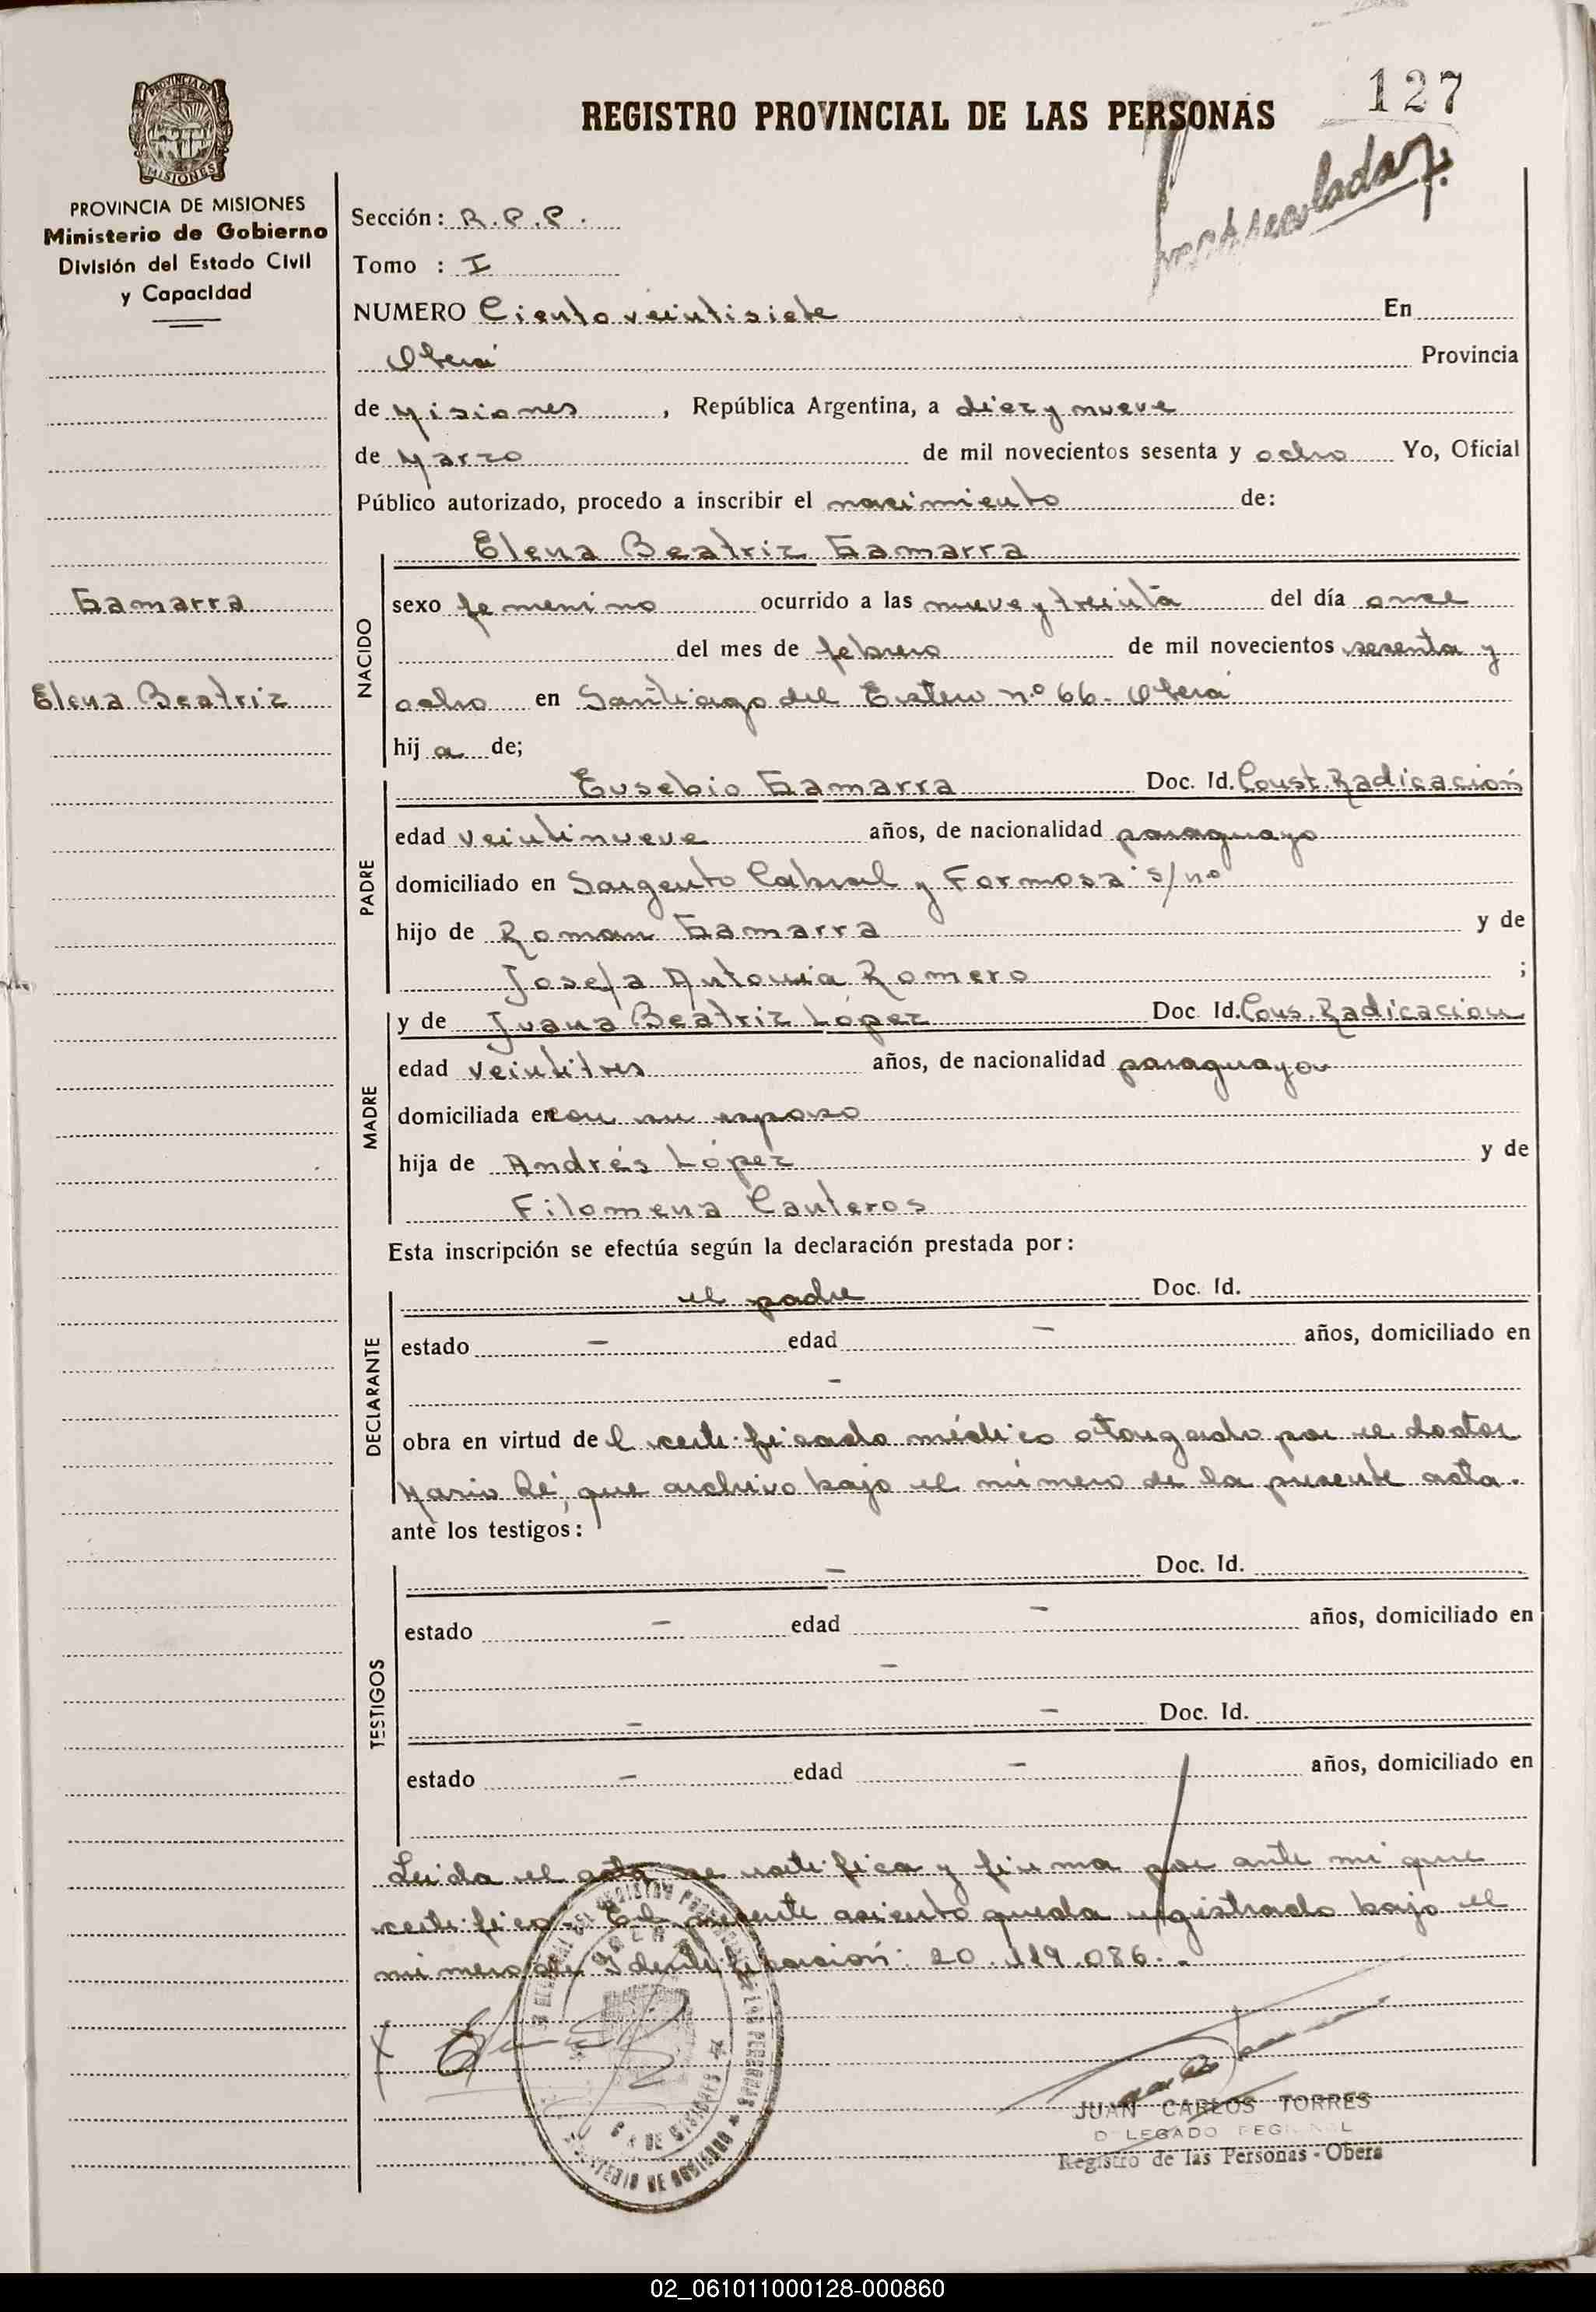 127
REGISTRO PROVINCIAL DE LAS PERSONAS
PROVINCIA DE
MISIONES
PROVINCIA DE MISIONES
Ministerio de Gobierno
División del Estado Civil
y Capacidad
Gamarra
Elena Beatriz
Sección: R.P.P.
Tomo : I
NUMERO Ciento veintisiete En
Oberá Provincia
de Misiones, República Argentina, a diez y nueve
de Marzo de mil novecientos sesenta y ocho Yo, Oficial
Público autorizado, procedo a inscribir el nacimiento de:
Elena Beatriz Gamarra
NACIDO
sexo femenino ocurrido a las nueve y treinta del día once
del mes de febrero de mil novecientos sesenta y
ocho en Santiago del Estero nº 66. Oberá
hij a de;
Eusebio Gamarra Doc. Id. Const. Radicación
PADRE
edad veintinueve años, de nacionalidad paraguayo
domiciliado en Sargento Cabral y Formosa s/nº
hijo de Roman Gamarra y de
Josefa Antonia Romero ;
y de Juana Beatriz López Doc. Id. Cons. Radicacion
MADRE
edad veintitres años, de nacionalidad paraguaya
domiciliada en con su esposo
hija de Andrés López y de
Filomena Canteros
Esta inscripción se efectúa según la declaración prestada por:
el padre Doc. Id.
DECLARANTE
estado - edad - años, domiciliado en
-
obra en virtud del certificado médico otorgado por el doctor
Mario Ré, que archivo bajo el número de la presente acta.
ante los testigos:
- Doc. Id.
TESTIGOS
estado - edad - años, domiciliado en
-
- - Doc. Id.
estado - edad - años, domiciliado en
Leida el acta se ratifica y firma por ante mi que
certifico. El presente asiento queda registrado bajo el
número de Identificación: 20.119.086.-
JUAN CARLOS TORRES
DELEGADO REGIONAL
Registro de las Personas - Oberá
02_061011000128-000860